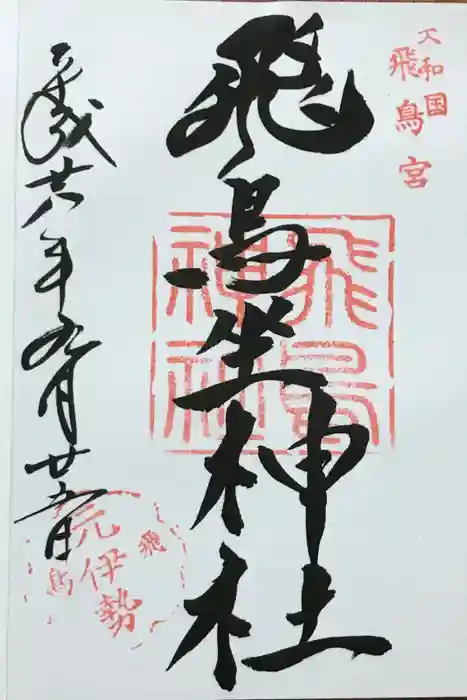 大和国
飛鳥宮
飛鳥坐神社
飛鳥
神社
平成廿六年九月廿五日
元伊勢
飛鳥